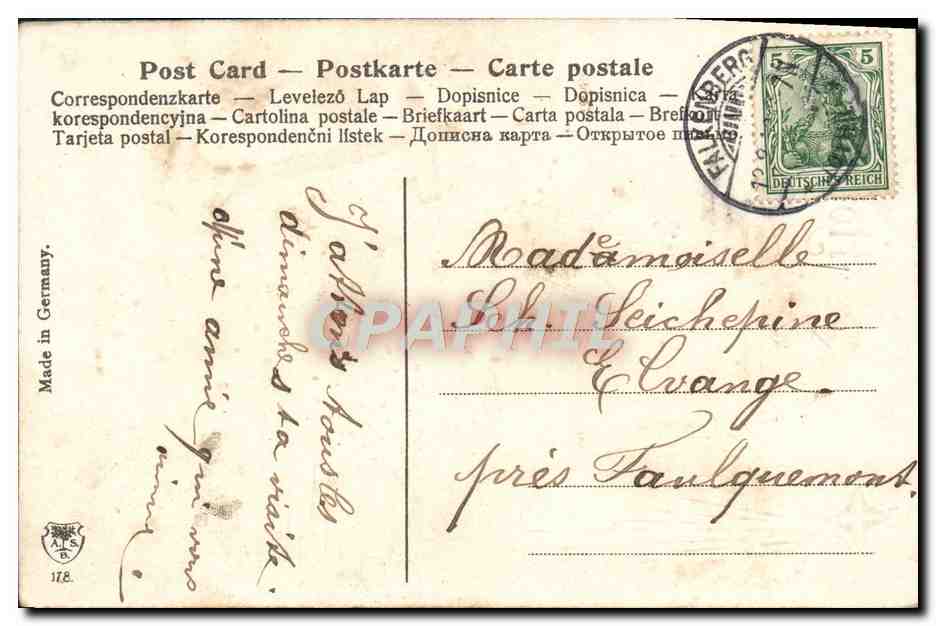 Post Card — Postkarte — Carte postale
Correspondenzkarte — Levelező Lap — Dopisnice — Dopisnica — Carta
korespondencyjna — Cartolina postale — Briefkaart — Carta postala — Brefkort
Tarjeta postal — Korespondenčni lístek — Дописна карта — Открытое
FALKENBERG
5 5
DEUTSCHES REICH
Made in Germany.
J'attends tous les
dimanches ta visite
d'une amie qui vous
aime
Madamoiselle
Sch. Seichepine
Elvange.
près Faulquemont.
CPAPHIL
A. S.
B.
178.